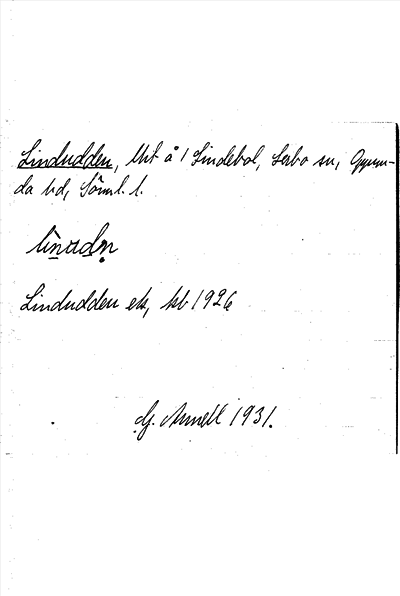 Lindudden, lht å 1 Lindebol, Lerbo sn, Oppun-
da hd, Söml. l.
Lindudden ek, kb 1926
G. Annell 1931.